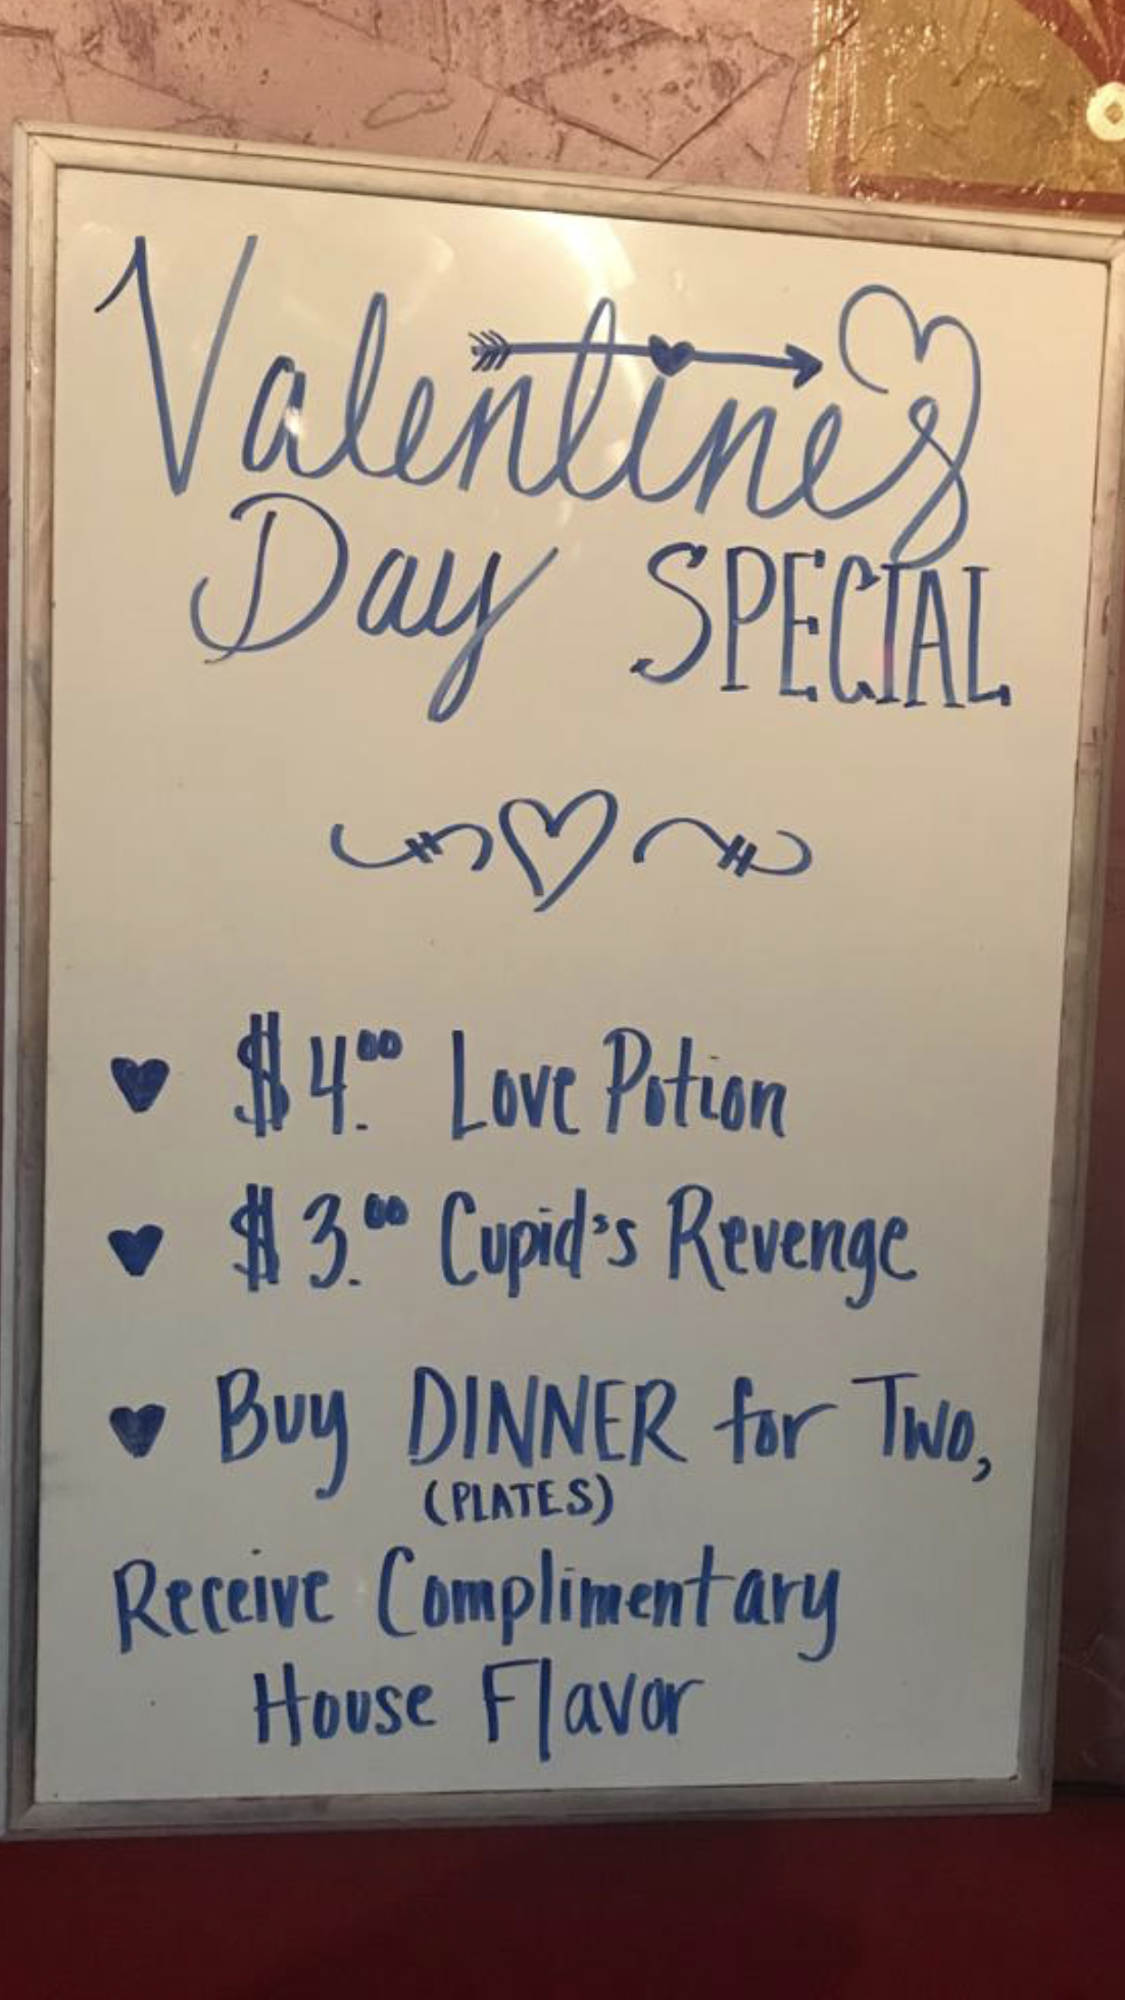 Valentines
Day SPECIAL
$4.00 Love Potion
$3.00 Cupid's Revenge
Buy DINNER for Two,
(PLATES)
Receive Complimentary
House Flavor